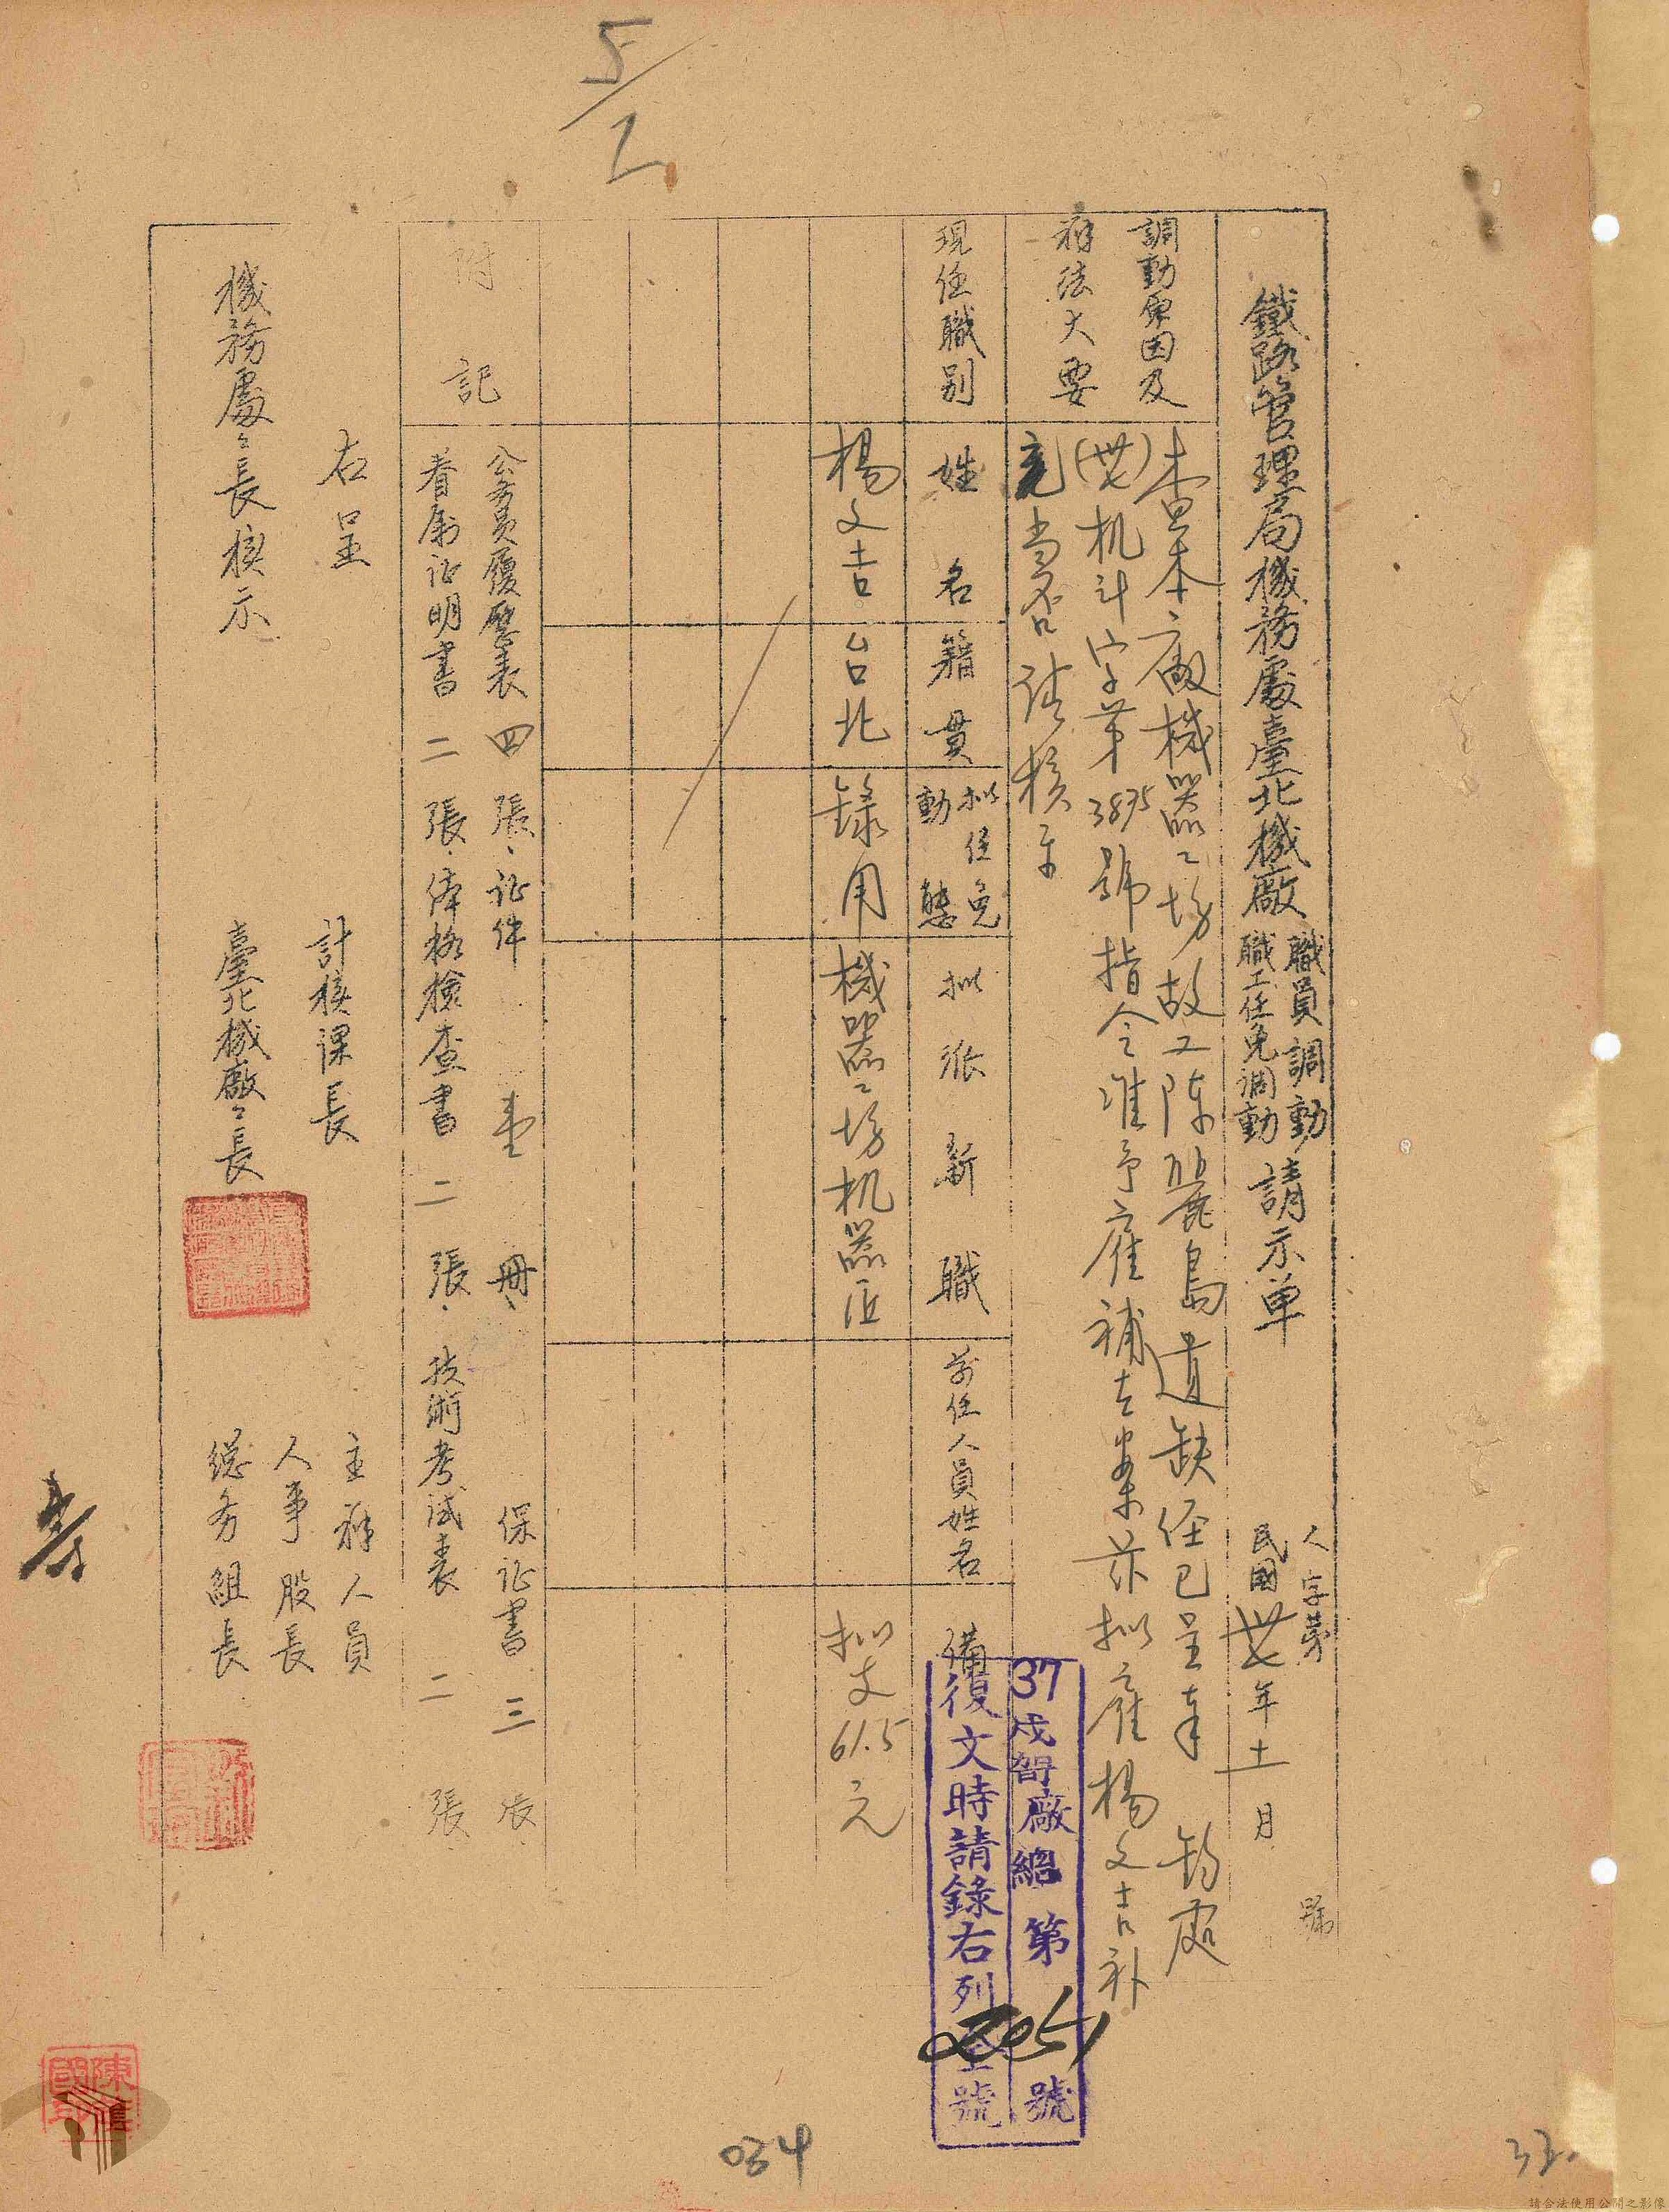 5/2
鐵路管理局機務處臺北機廠
職員調動
職工任免調動
請示单
人字第　號
民國卅七年十一月
調動原因及
辦法大要
查本廠機器工場故工陳麗島遺缺經已呈奉　鈞處
(卅七)机計字第3875號指令准予雇補在案茲拟雇楊文吉补
充當否請核示
現任職别
姓名
籍貫
拟任免
動態
拟派新職
前任人員姓名
備
楊文吉
台北
錄用
機器工場机器匠
拟支61.5元
附記
公務員履歷表四張、証件壹冊、保证書三張、
眷屬证明書二張、体格檢查書二張、技術考試表二張、
右呈
機務處處長核示
計核課長
臺北機廠廠長
主辦人員
人事股長
総务組長
37戌
廠總第2051號
復文時請錄右列全號
034
請合法使用公開之影像